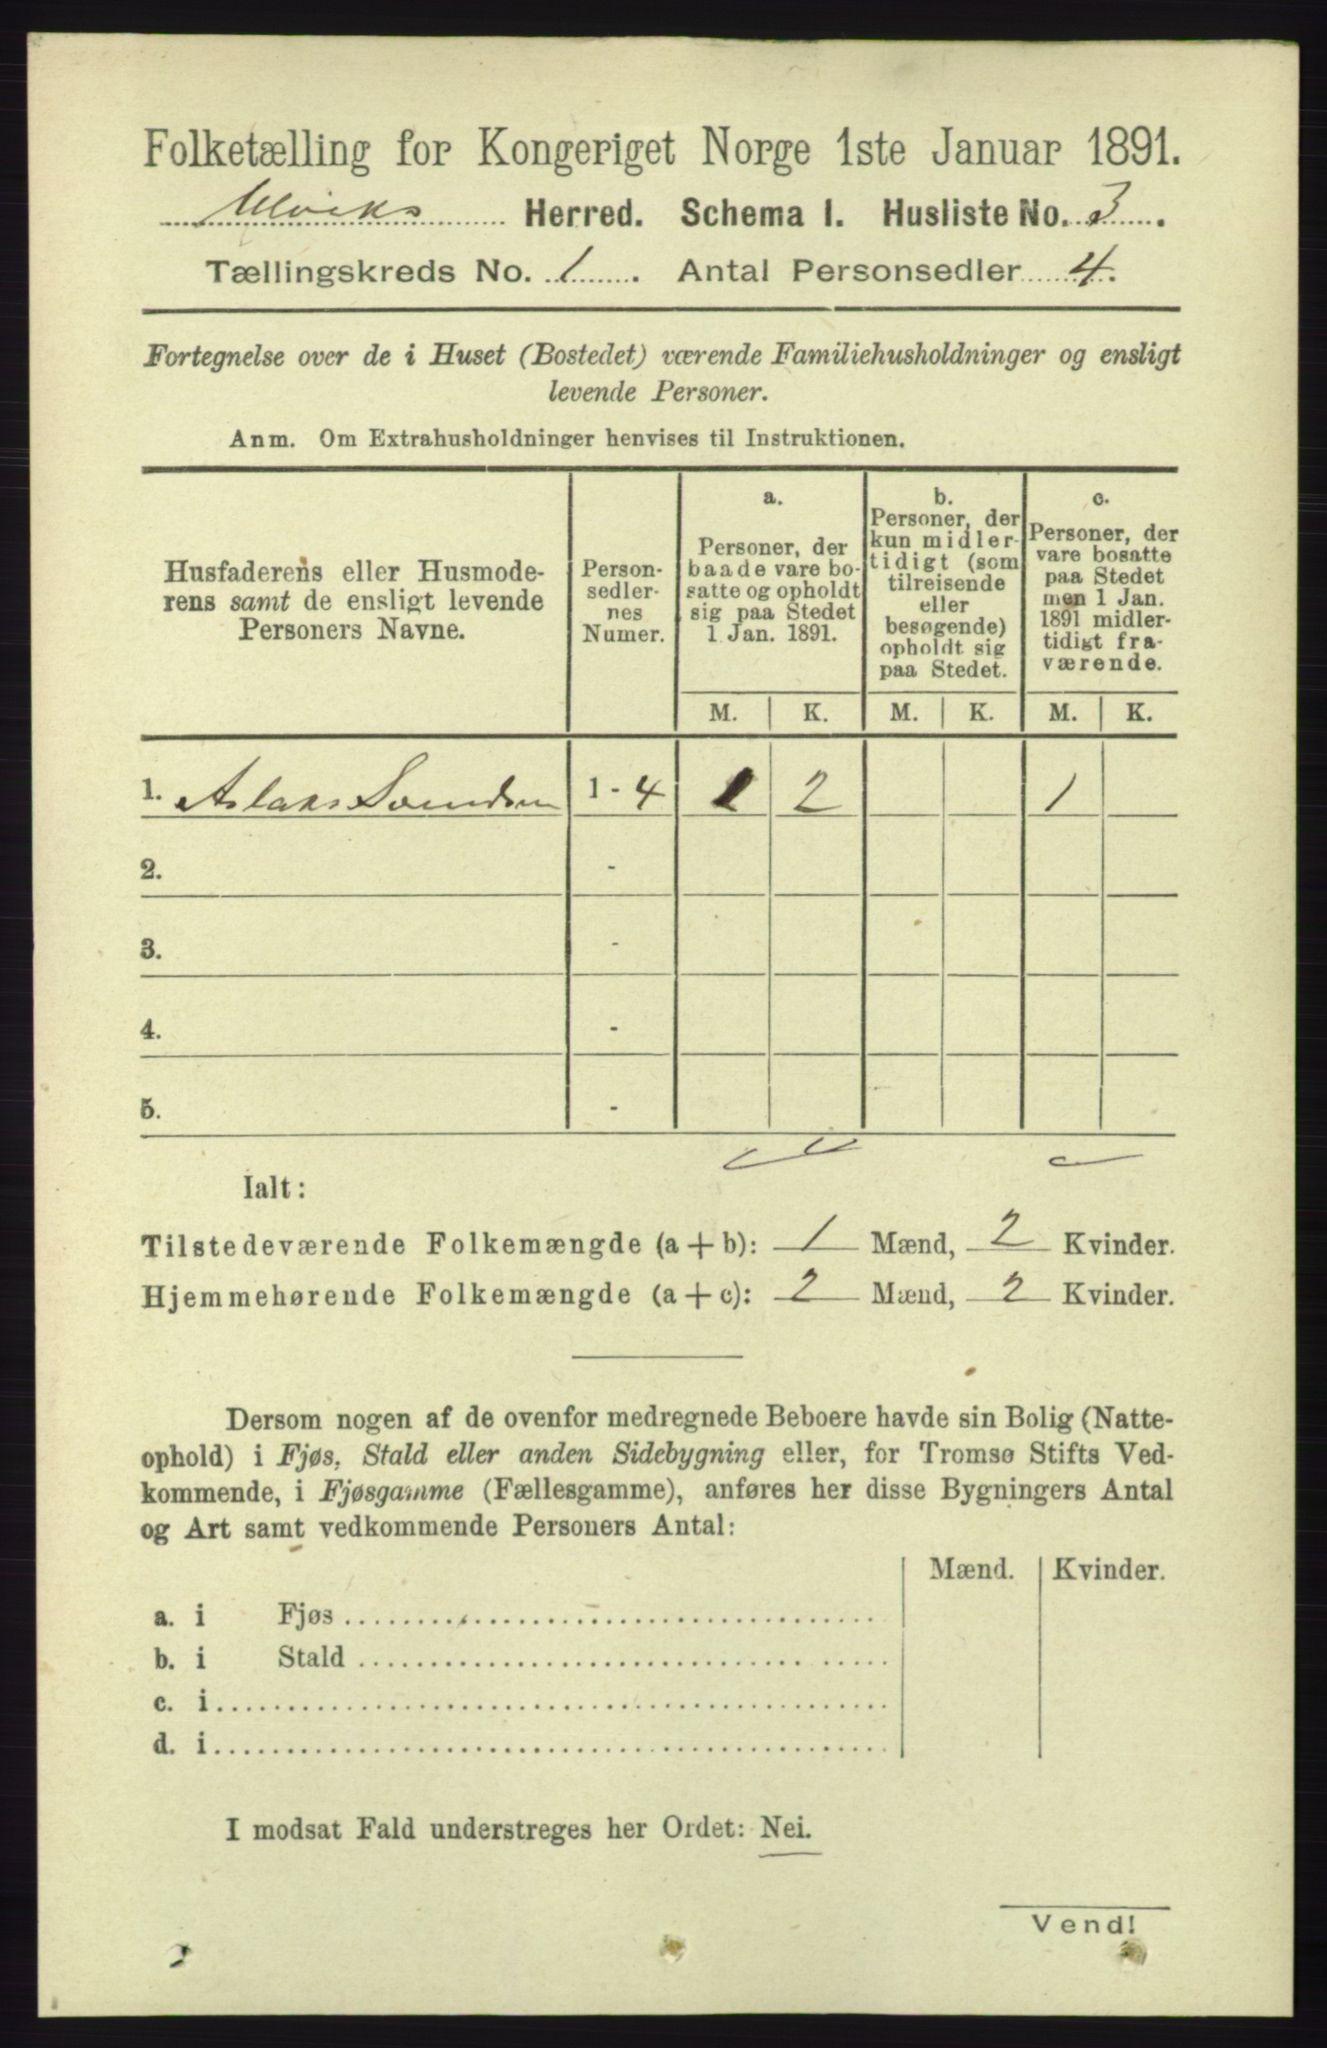 Folketælling for Kongeriget Norge 1ste Januar 1891.
Ulviks Herred. Schema I. Husliste No. 3.
Tællingskreds No. 1. Antal Personsedler 4.
Fortegnelse over de i Huset (Bostedet) værende Familiehusholdninger og ensligt
levende Personer.
Anm. Om Extrahusholdninger henvises til Instruktionen.
Husfaderens eller Husmode-
rens samt de ensligt levende
Personers Navne.
Person-
sedler-
nes
Numer.
a.
Personer, der
baade vare bo-
satte og opholdt
sig paa Stedet
1 Jan. 1891.
b.
Personer, der
kun midler-
tidigt (som
tilreisende
eller
besøgende)
opholdt sig
paa Stedet.
c.
Personer, der
vare bosatte
paa Stedet
men 1 Jan.
1891 midler-
tidigt fra-
værende.
M. K. M. K. M. K.
1. Aslak 1-4 1 2 1
2. -
3. -
4. -
5. -
Ialt:
Tilstedeværende Folkemængde (a+b): 1 Mænd, 2 Kvinder.
Hjemmehørende Folkemængde (a+c): 2 Mænd, 2 Kvinder.
Dersom nogen af de ovenfor medregnede Beboere havde sin Bolig (Natte-
ophold) i Fjøs, Stald eller anden Sidebygning eller, for Tromsø Stifts Ved-
kommende, i Fjøsgamme (Fællesgamme), anføres her disse Bygningers Antal
og Art samt vedkommende Personers Antal:
Mænd. Kvinder.
a. i Fjøs
b. i Stald
c. i
d. i
I modsat Fald understreges her Ordet: Nei.
Vend!